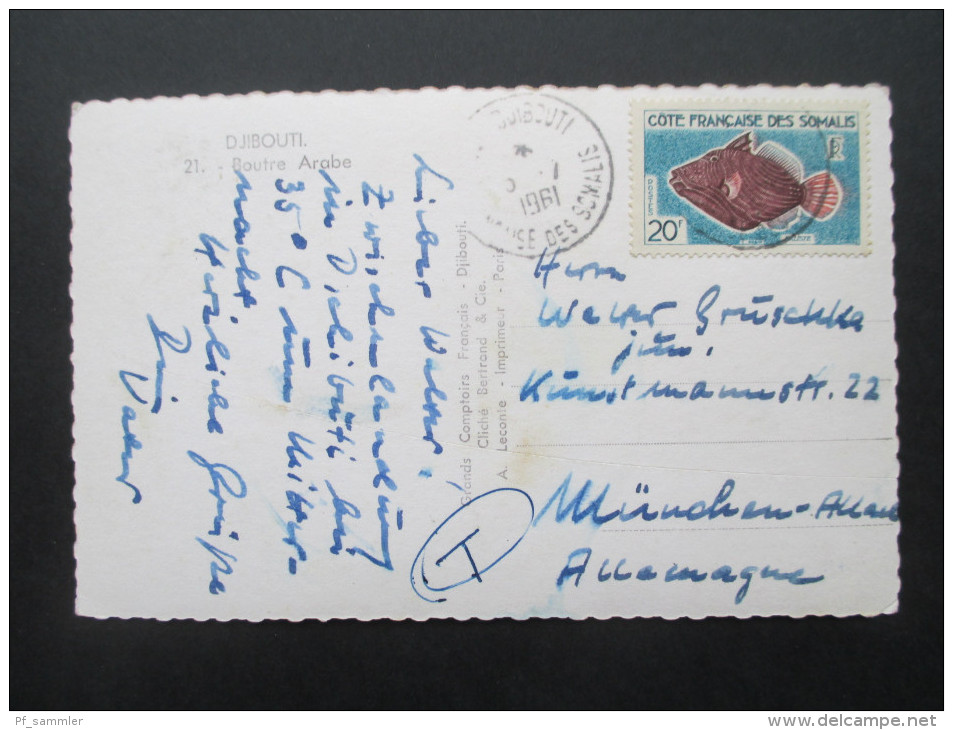 DJIBOUTI.
21. - Boutre Arabe
Lieber Walter,
Zwischenlandung
in Dschibuti bei
35° C um Mitter-
nacht.
Herzliche Grüße
Dein
Vater
Grands Comptoirs Français - Djibouti.
Cliché Bertrand & Cie.
A. Leconte - Imprimeur - Paris
DJIBOUTI
1961
DES SOMALIS
CÔTE FRANÇAISE DES SOMALIS
RF
POSTES
20F
Herrn
Walter Gruschka
jun.
Kunstmannstr. 22
München-Allach
Allemagne
T
Pf_sammler
www.delcampe.net